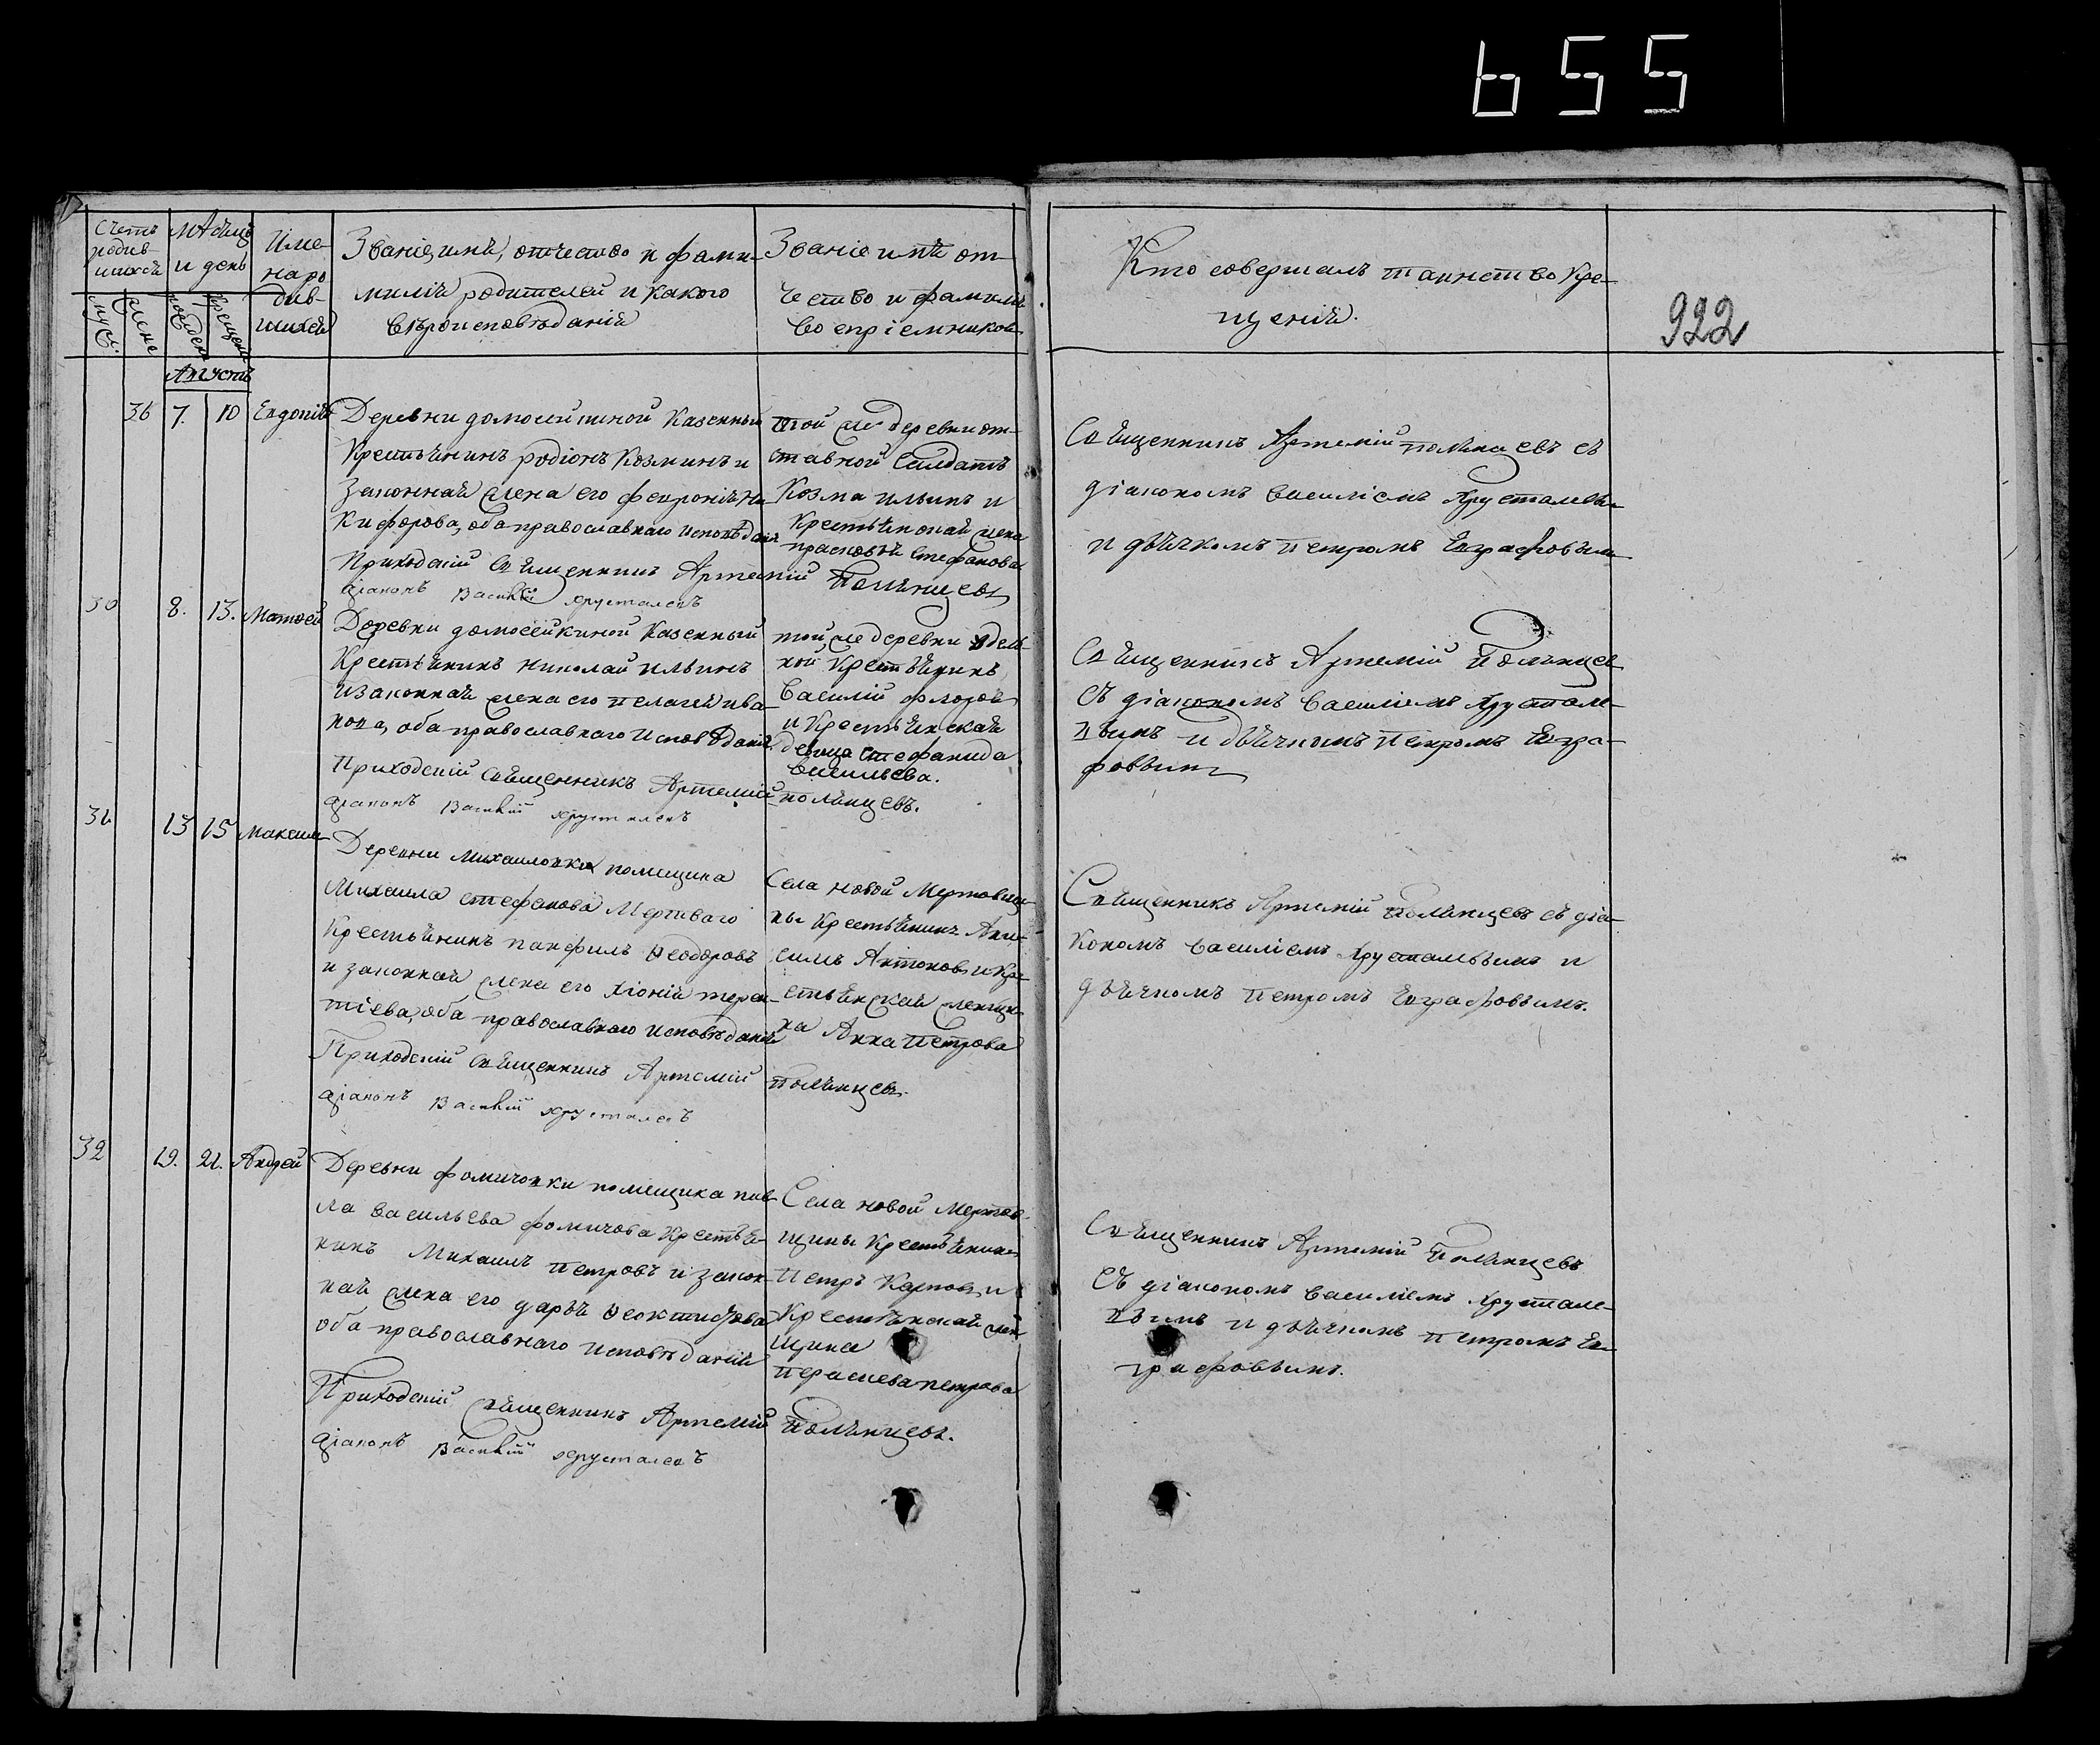 655
922
Счетъ родив-шихся
Мѣсяцъ и день
Име-на ро див-шихся
Званіе, имя, отчество и фами-
милія родителей и какого
вѣроисповѣданія
Званіе имя от-
чество и фамилія
воспріемниковъ
Кто совершалъ таинство Кре-
щенія.
муж.
женс
рожден
крещен
Августъ
36 7. 10 Евдокія
Деревни домосейкиной Казенный
Крестьянинъ родіонъ Козминъ и
Законная жена его феврониія Ни
кифорова, оба православнаго исповѣданія
Приходскій Священникъ Артемій Полянцевъ
діаконъ Василій хрусталевъ
той же деревни от-
ставной Салдатъ
Козма ильинъ и
Крестьянская жена
прасковья Стефанова
Священникъ Артемій полянцевъ съ
діакономъ василіемъ Хрусталевы
и дьячкомъ петромъ Евграфовым
30 8. 13. Матвей
Деревни домосейкиной Казенный
Крестьянинъ николай ильинъ
и законная жена его пелагея ива-
нова, оба православнаго исповѣданія
Приходскій священникъ Артемій полянцевъ.
діаконъ Василій хрусталевъ
той же деревни удель-
ной Крестьянинъ
василій фторов
и Крестьянская
девица Стефанида
васильева.
Священникъ Артемій Полянцев
съ діакономъ василіемъ хрустале-
вымъ и дьячкомъ петромъ Евгра-
фовымъ
31 13 15 Максим
Деревни Михаиловки помещика
Михаила стефанова Мертваго
Крестьянинъ панфилъ Ѳеодоровъ
и законная жена его Хіония терен-
тіева, оба православнаго исповѣданія
Приходскій Священникъ Артемій Полянцевъ.
діаконъ Василій хрусталевъ
Села новой Мертовщи-
ны Крестьянинъ Ани-
симъ Антоновъ и Кре-
стьянская женщи-
на Анна Петрова
Священникъ Артемій Полянцевъ съ діа-
кономъ василіемъ Хрусталевымъ и
дьячкомъ Петромъ Евграфовымъ.
32 19. 21. Андрей
Деревни фомичовки помещика пав
ла васильева фомичова Крестья-
нинъ Михаилъ петровъ и закон-
ная жена его дарья Ѳеоктистова
оба православнаго исповѣданія
Приходскій священникъ Артемій Полянцевъ.
діаконъ Василій хрусталевъ
Села новой Мертов-
щины Крестьянинъ
Петръ Карповъ и
Крестьянская жен
щина
петрова
Священникъ Артемій Полянцевъ
Съ діакономъ василіемъ хрустале-
вымъ и дьячкомъ петромъ Ев-
графовымъ.